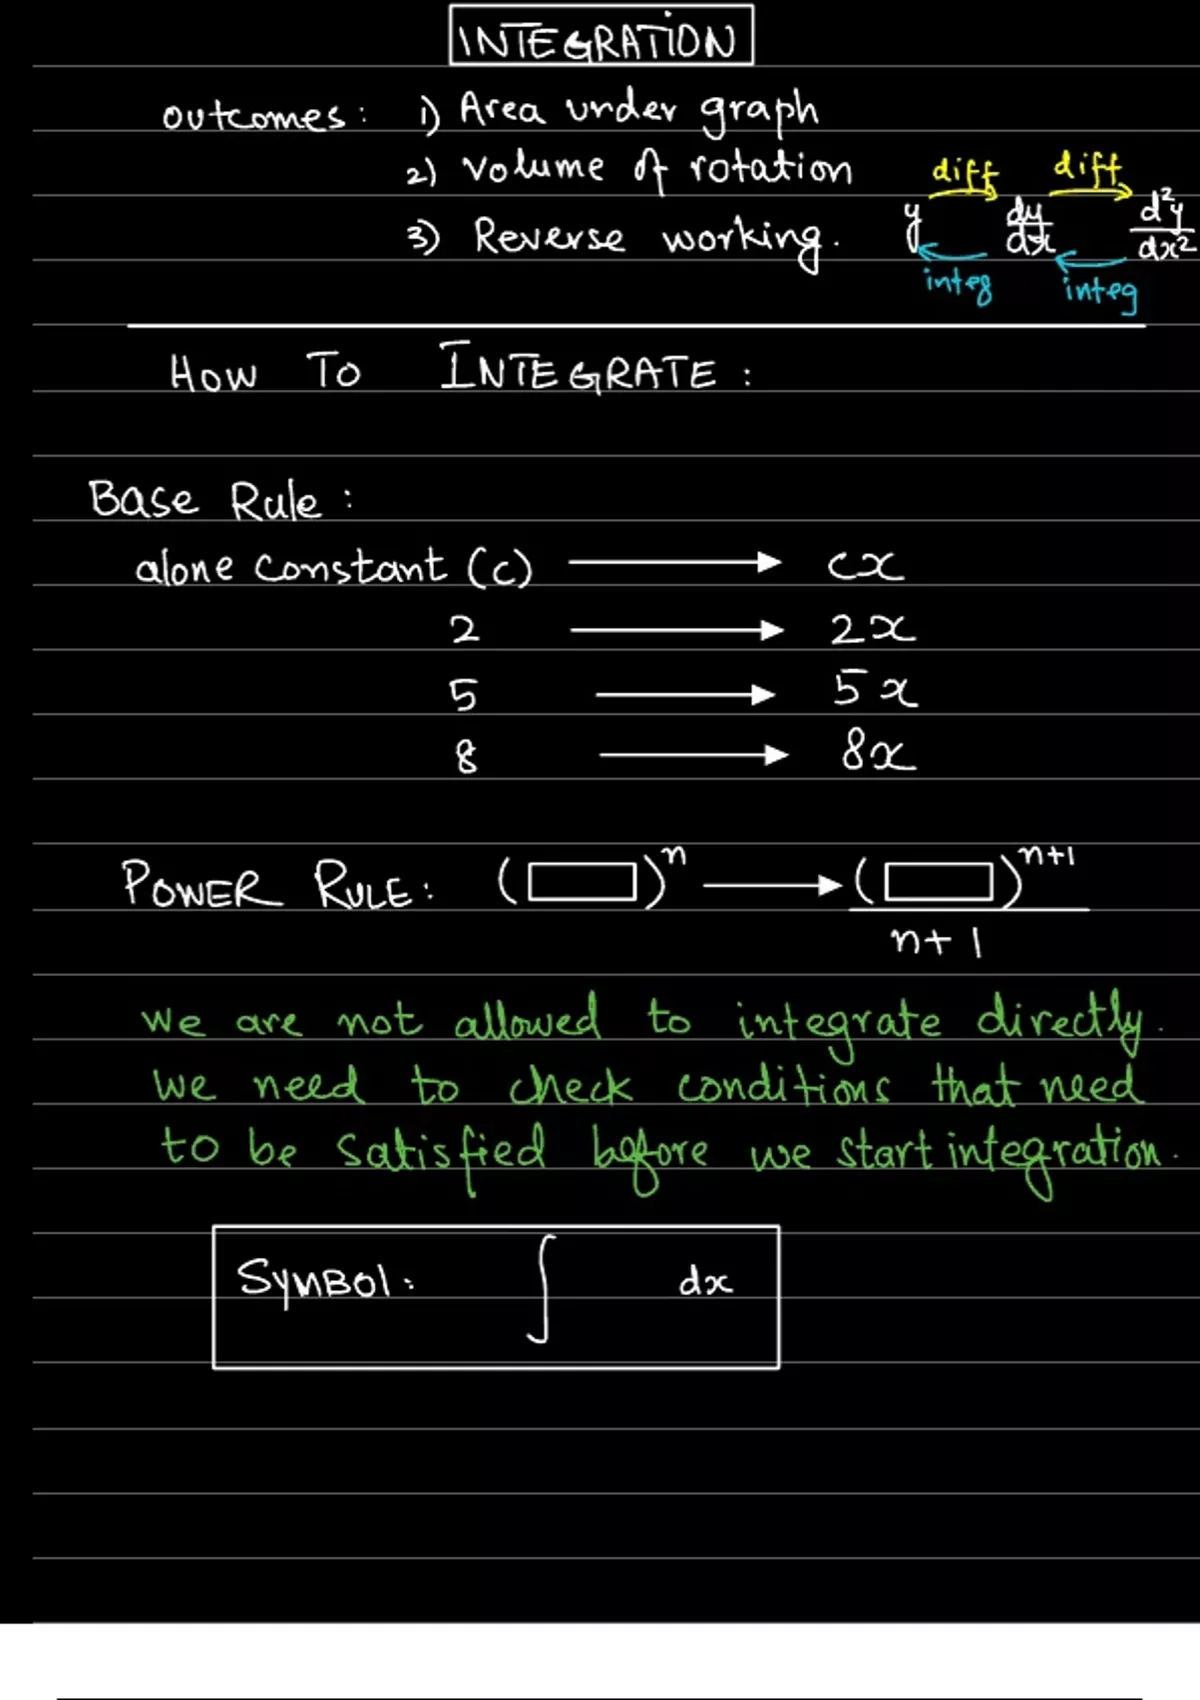 INTEGRATION
outcomes: 1) Area under graph
2) Volume of rotation
3) Reverse working.
diff diff
y dy/dx d²y/dx²
integ integ
HOW TO INTEGRATE :
Base Rule :
alone constant (c) → cx
2 → 2x
5 → 5x
8 → 8x
POWER RULE: (▭)ⁿ → (▭)ⁿ⁺¹
n+1
We are not allowed to integrate directly.
We need to check conditions that need
to be satisfied before we start integration.
SYMBOL: ∫ dx